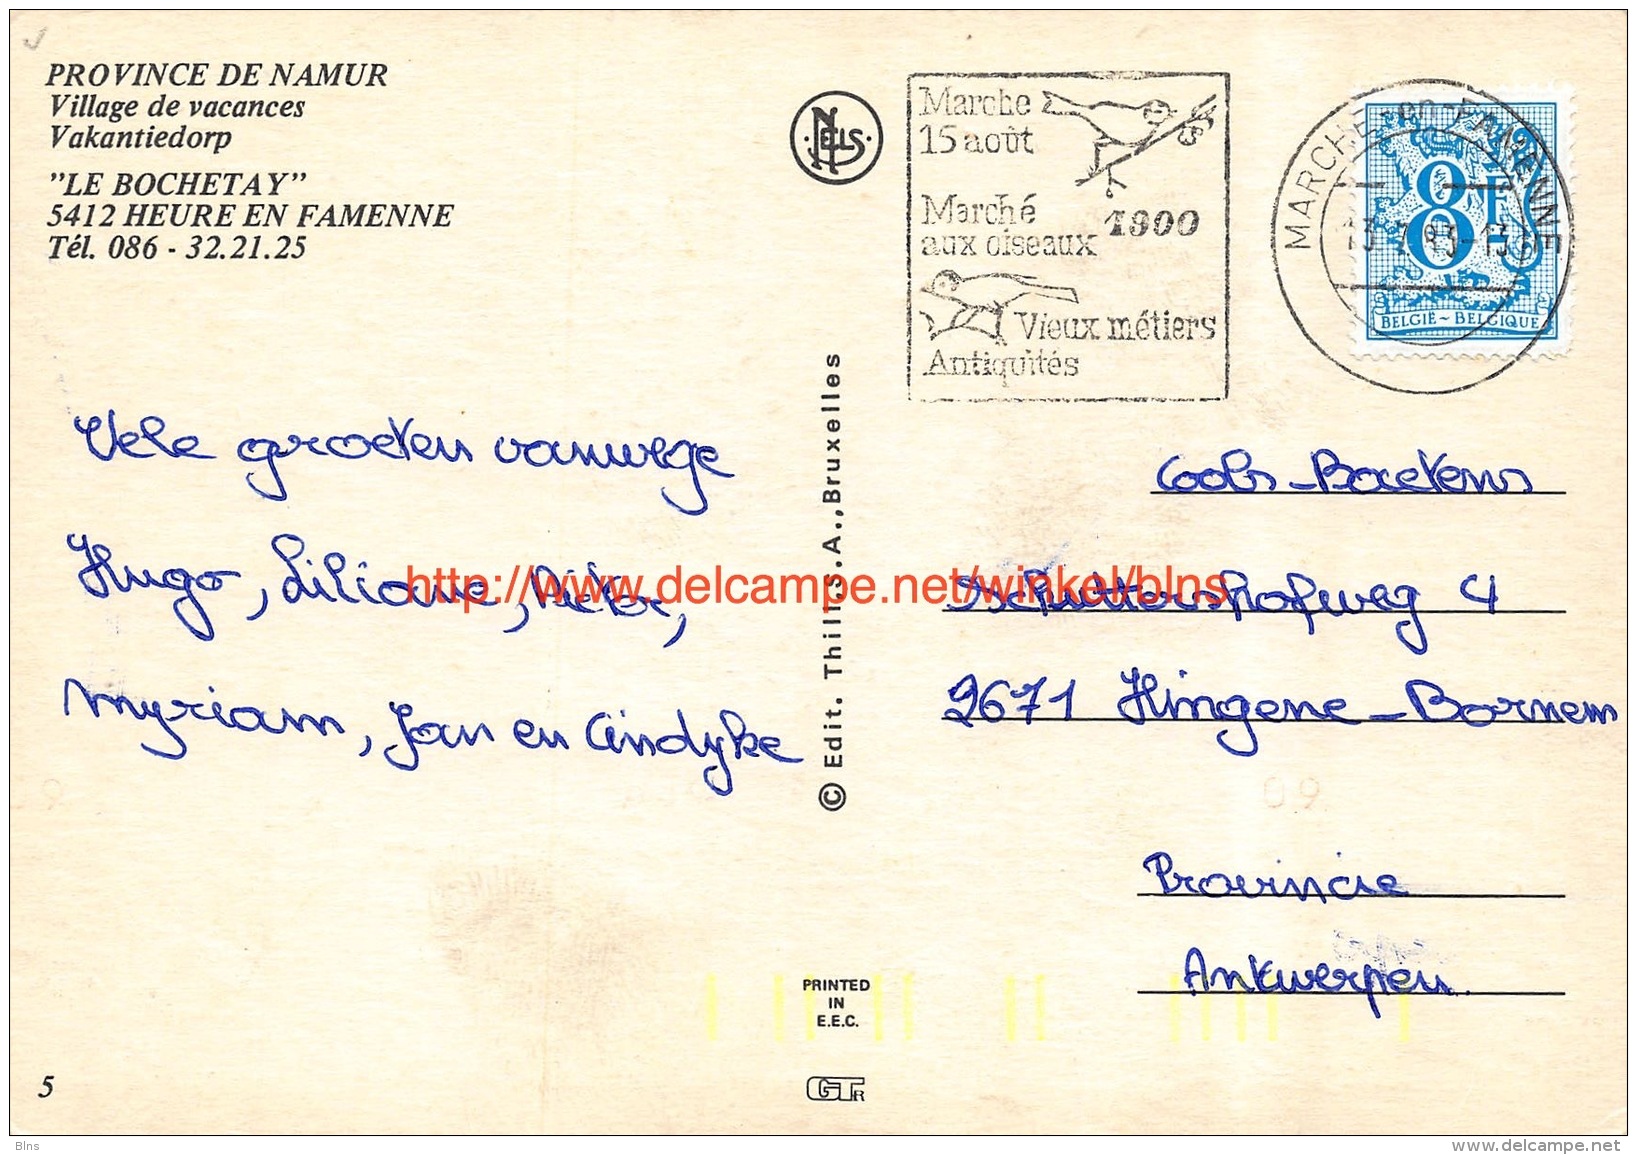 PROVINCE DE NAMUR
Village de vacances
Vakantiedorp
"LE BOCHETAY"
5412 HEURE EN FAMENNE
Tél. 086 - 32.21.25
NELS
Marche
15 août
Marché 1900
aux oiseaux
Vieux métiers
Antiquités
MARCHE-en-FAMENNE
8F
BELGIË ~ BELGIQUE
Vele groeten vanwege
Hugo, Liliane, Viktor,
Myriam, Jan en Cindyke
© Edit. Thill, S.A., Bruxelles
Cools-Baetens
Schuttershofweg 4
2671 Hingene-Bornem
09
Provincie
Antwerpen
http://www.delcampe.net/winkel/blns
PRINTED
IN
E.E.C.
5
GTR
Blns
www.delcampe.net